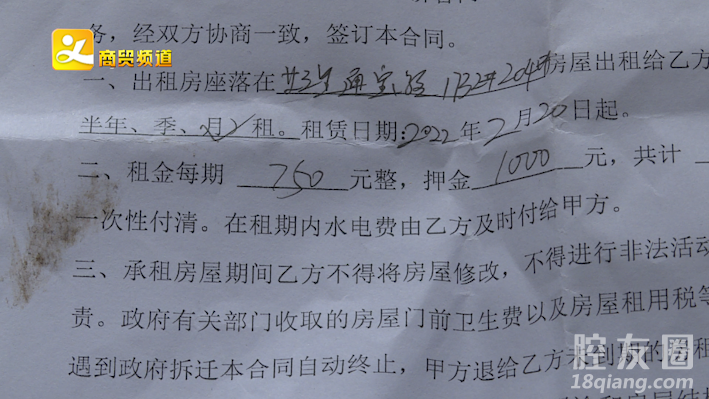 商贸频道
务，经双方协商一致，签订本合同。
一、出租房座落在 通宝 1732#204# 房屋出租给乙方
半年、季、月 租。租赁日期：2022年2月20日起。
二、租金每期 750 元整，押金 1000 元，共计
一次性付清。在租期内水电费由乙方及时付给甲方。
三、承租房屋期间乙方不得将房屋修改，不得进行非法活动
责。政府有关部门收取的房屋门前卫生费以及房屋租用税等
遇到政府拆迁本合同自动终止，甲方退给乙方未到期的房租
腔友圈
18qiang.com